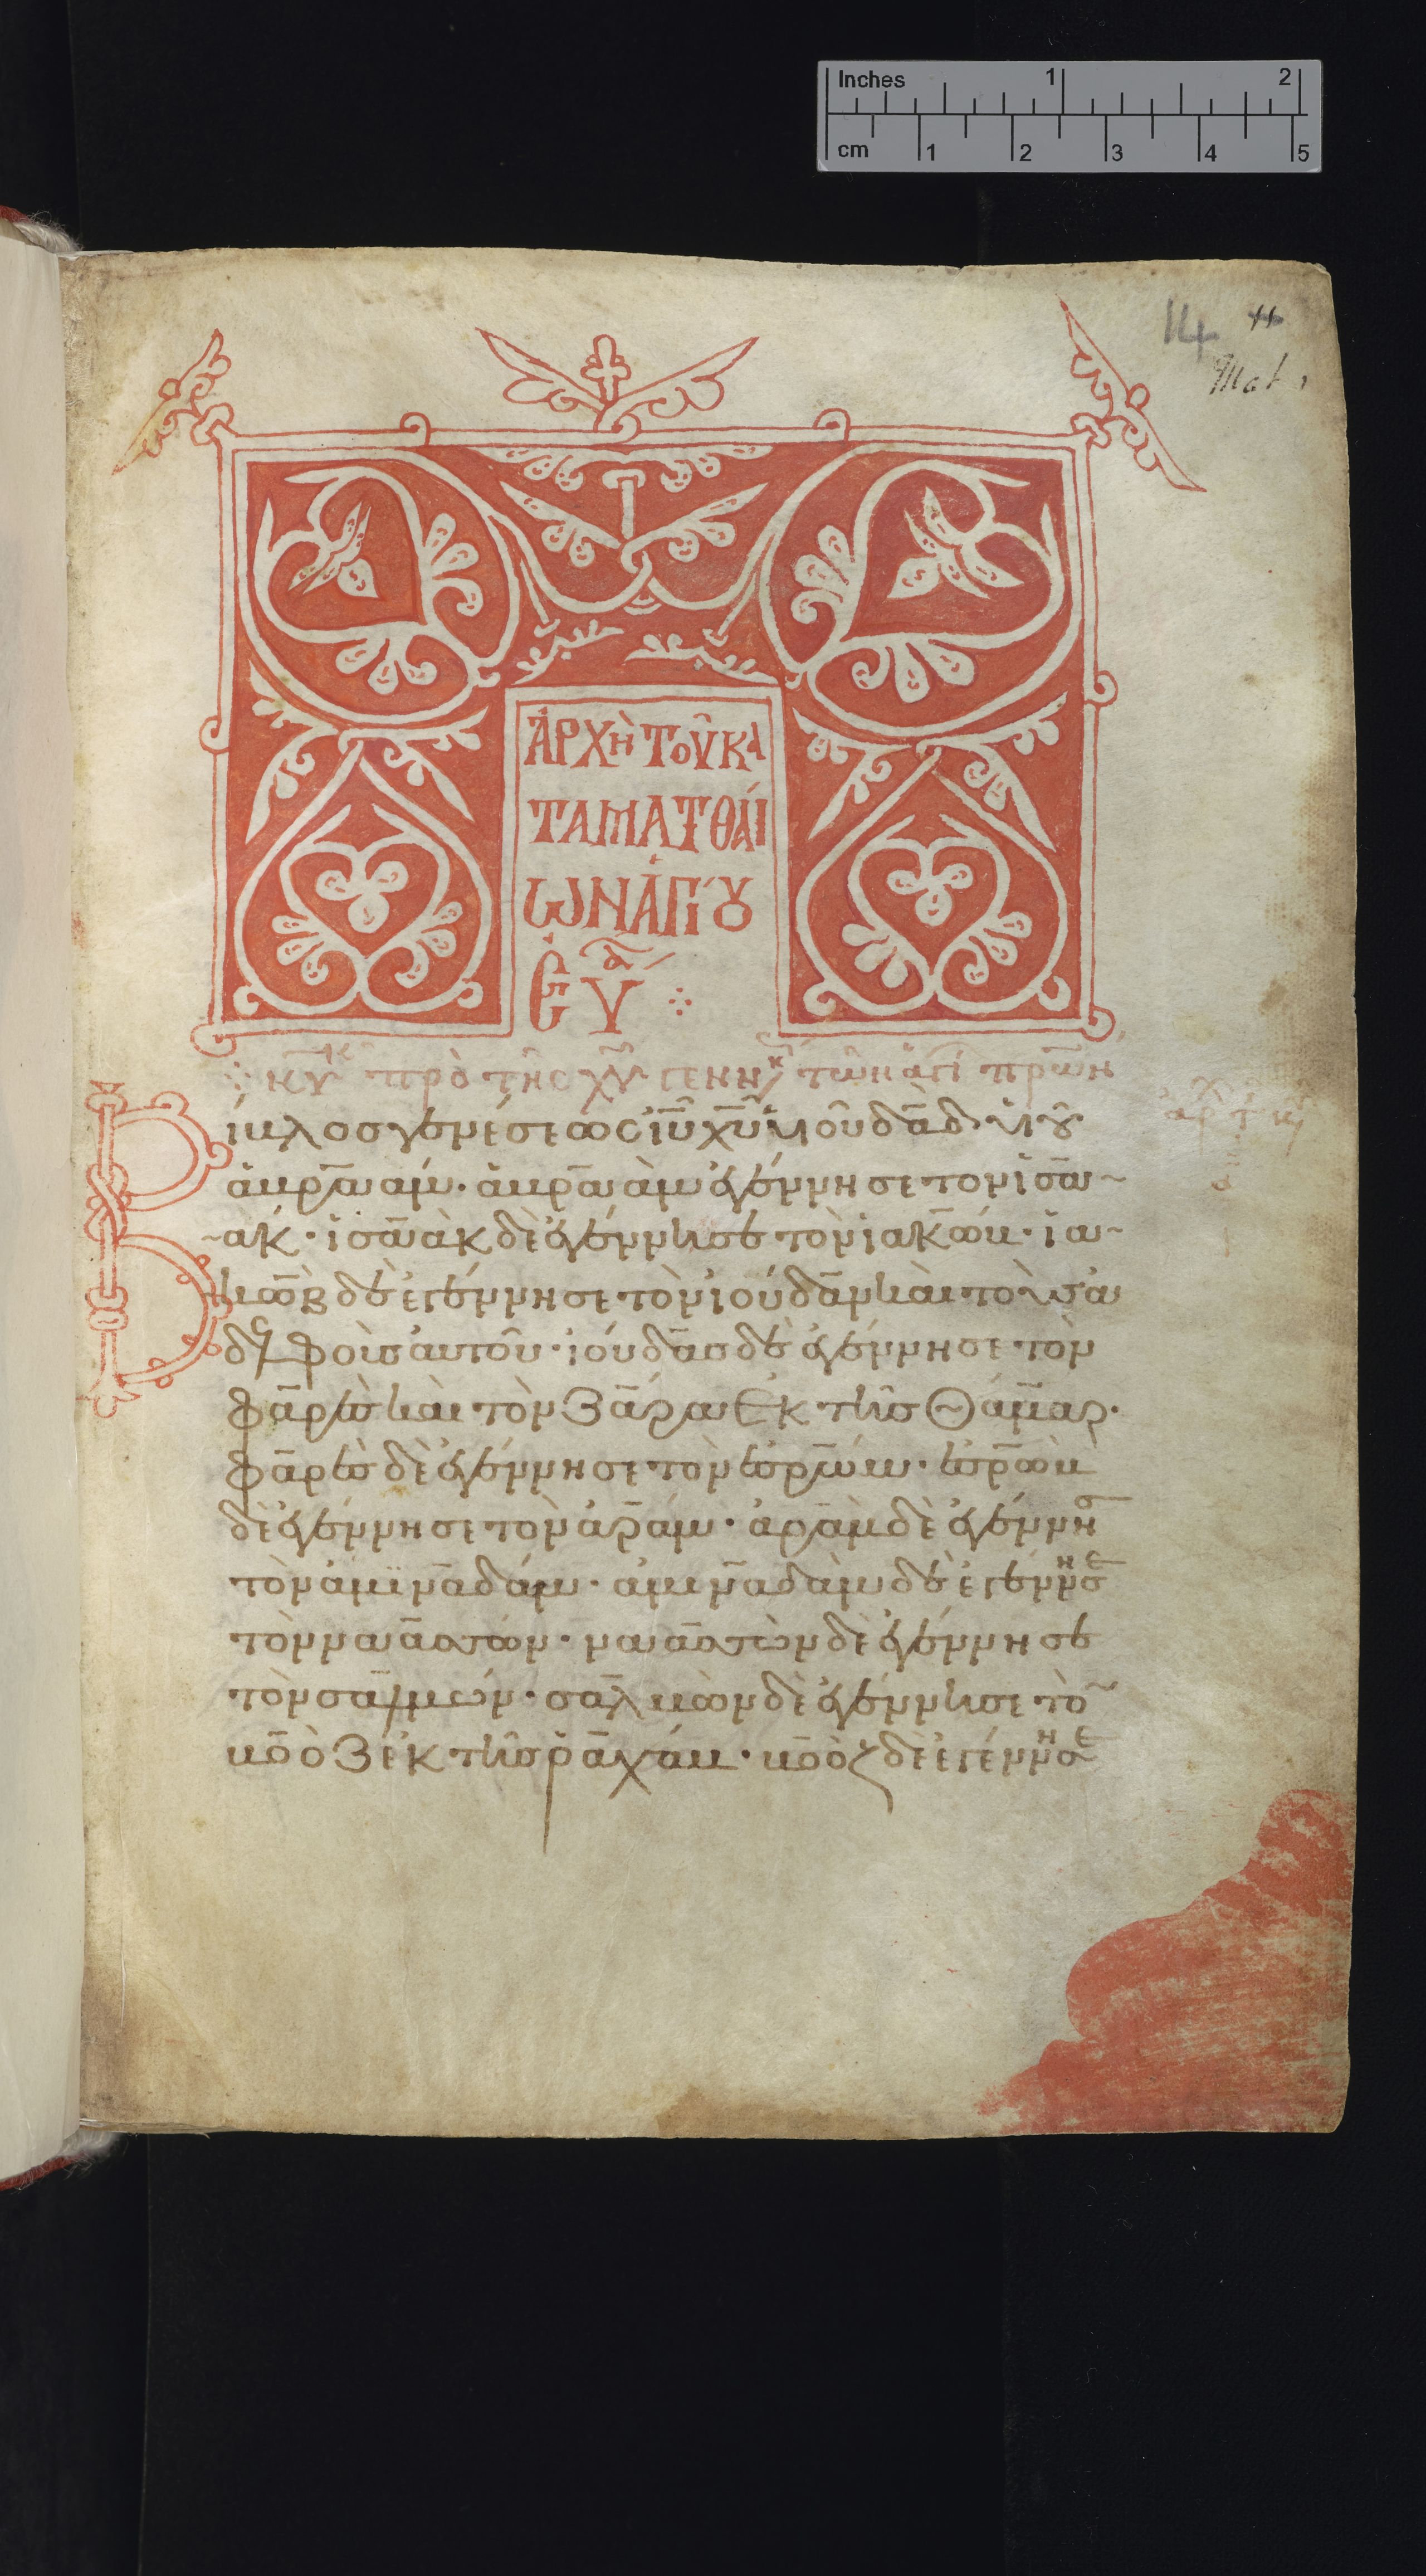 Inches 1 2
cm 1 2 3 4 5
14
Mat 1
ἈΡΧῊ ΤΟῦ ΚΑ
ΤΑ ΜΑΤΘΑῖ
ΩΝ ἉΓΊΟΥ
ΕΥ̓Α
κυ πρὸ τῆς χυ γενν τῶν ἁγι πρων
Βίβλος γενέσεως ἰυ χυ υἱοῦ δαδ υἱοῦ
ἀβραάμ· ἀβραὰμ ἐγέννησε τον ἰσα
ακ· ἰσαὰκ δὲ ἐγέννησε τὸν ἰακώβ· ἰα
κὼβ δὲ ἐγέννησε τὸν ἰούδαν καὶ τοὺς ἀ
δελφοὺς ἀυτοῦ· ἰούδας δὲ ἐγέννησε τὸν
φαρὲς καὶ τὸν ζάρα ἐκ τῆς θάμαρ·
φαρὲς δὲ ἐγέννησε τὸν ἐσρώμ· ἐσρὼμ
δὲ ἐγέννησε τὸν ἀράμ· ἀρὰμ δὲ ἐγέννησ
τὸν ἀμϊναδάμ· ἀμιναδὰμ δὲ ἐγέννησε
τὸν ναασσών· ναασσὼν δὲ ἐγέννησε
τὸν σαλμών· σαλμὼν δὲ ἐγέννησε τὸ
βοὸζ ἐκ τῆς ῥαχάβ· βοὸζ δὲ ἐγέννησε